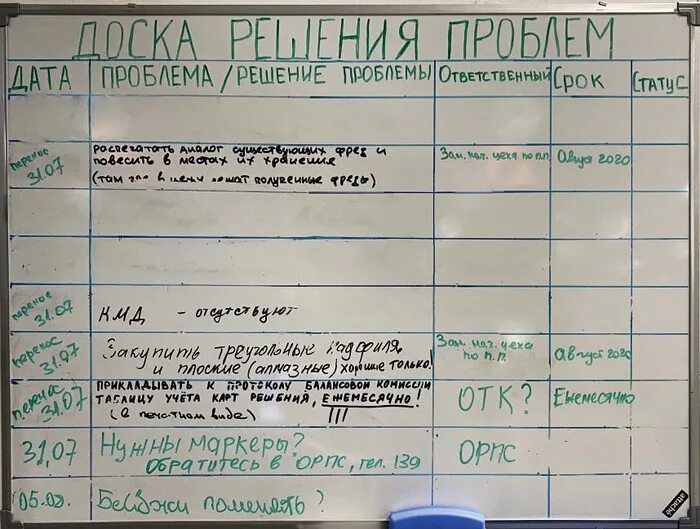 ДОСКА РЕШЕНИЯ ПРОБЛЕМ
ДАТА ПРОБЛЕМА / РЕШЕНИЕ ПРОБЛЕМЫ ОТВЕТСТВЕННЫЙ СРОК СТАТУС
перенос 31.07
распечатать диалог существующих фрез и
повесить в местах их хранения
(там где в цеху лежат полученные фрезы)
Зам. нач. цеха по п.п.
Август 2020
перенос 31.07
КМД - отсутствуют
перенос 31.07
Закупить треугольные надфиля
и плоские (алмазные) хорошие только!
Зам. нач. цеха
по п.п.
август 2020
перенос 31.07
ПРИКЛАДЫВАТЬ К ПРОТОКОЛУ БАЛАНСОВОЙ КОМИССИИ
ТАБЛИЦУ УЧЁТА КАРТ РЕШЕНИЯ, ЕЖЕМЕСЯЧНО!
(в печатном виде) !!!
ОТК?
Ежемесячно
31,07
Нужны маркеры?
Обратитесь в ОРПС, тел. 139
ОРПС
05.09.
Бейджи поменять?